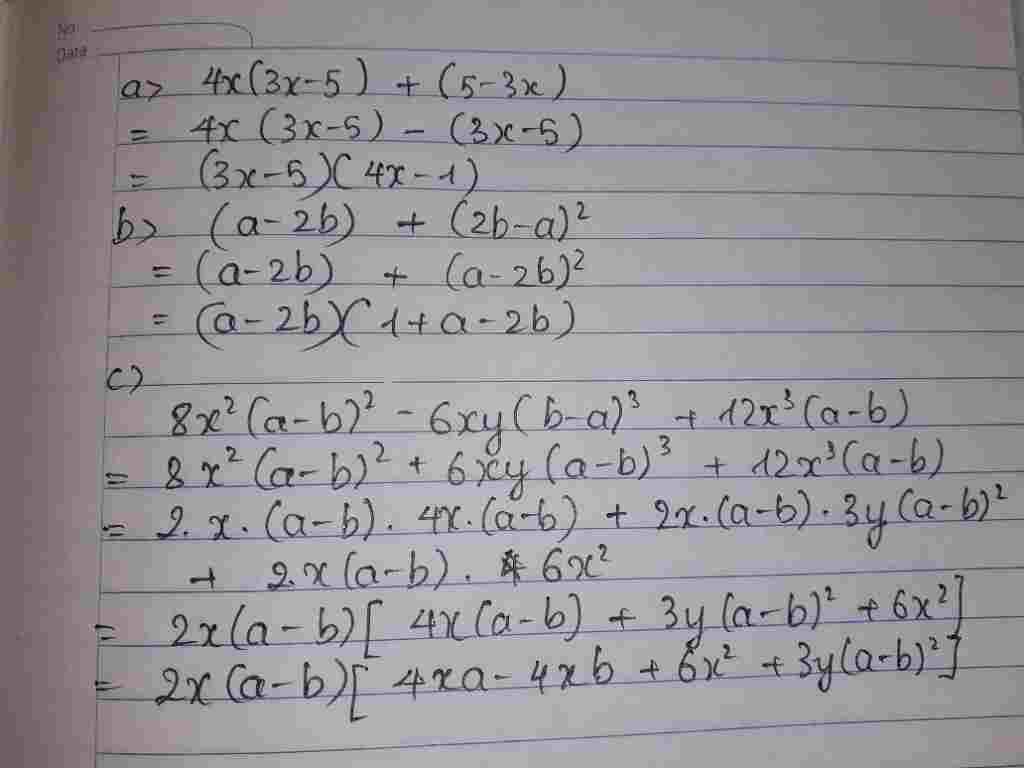 No
Date
a> 4x(3x-5) + (5-3x)
= 4x (3x-5) - (3x-5)
= (3x-5)(4x-1)
b> (a-2b) + (2b-a)²
= (a-2b) + (a-2b)²
= (a-2b)(1+a-2b)
c)
8x²(a-b)² - 6xy(b-a)³ + 12x³(a-b)
= 8x²(a-b)² + 6xy(a-b)³ + 12x³(a-b)
= 2.x.(a-b). 4x.(a-b) + 2x.(a-b).3y(a-b)²
+ 2.x(a-b). 6x²
= 2x(a-b)[ 4x(a-b) + 3y(a-b)² + 6x²]
= 2x(a-b)[ 4xa - 4xb + 6x² + 3y(a-b)²]